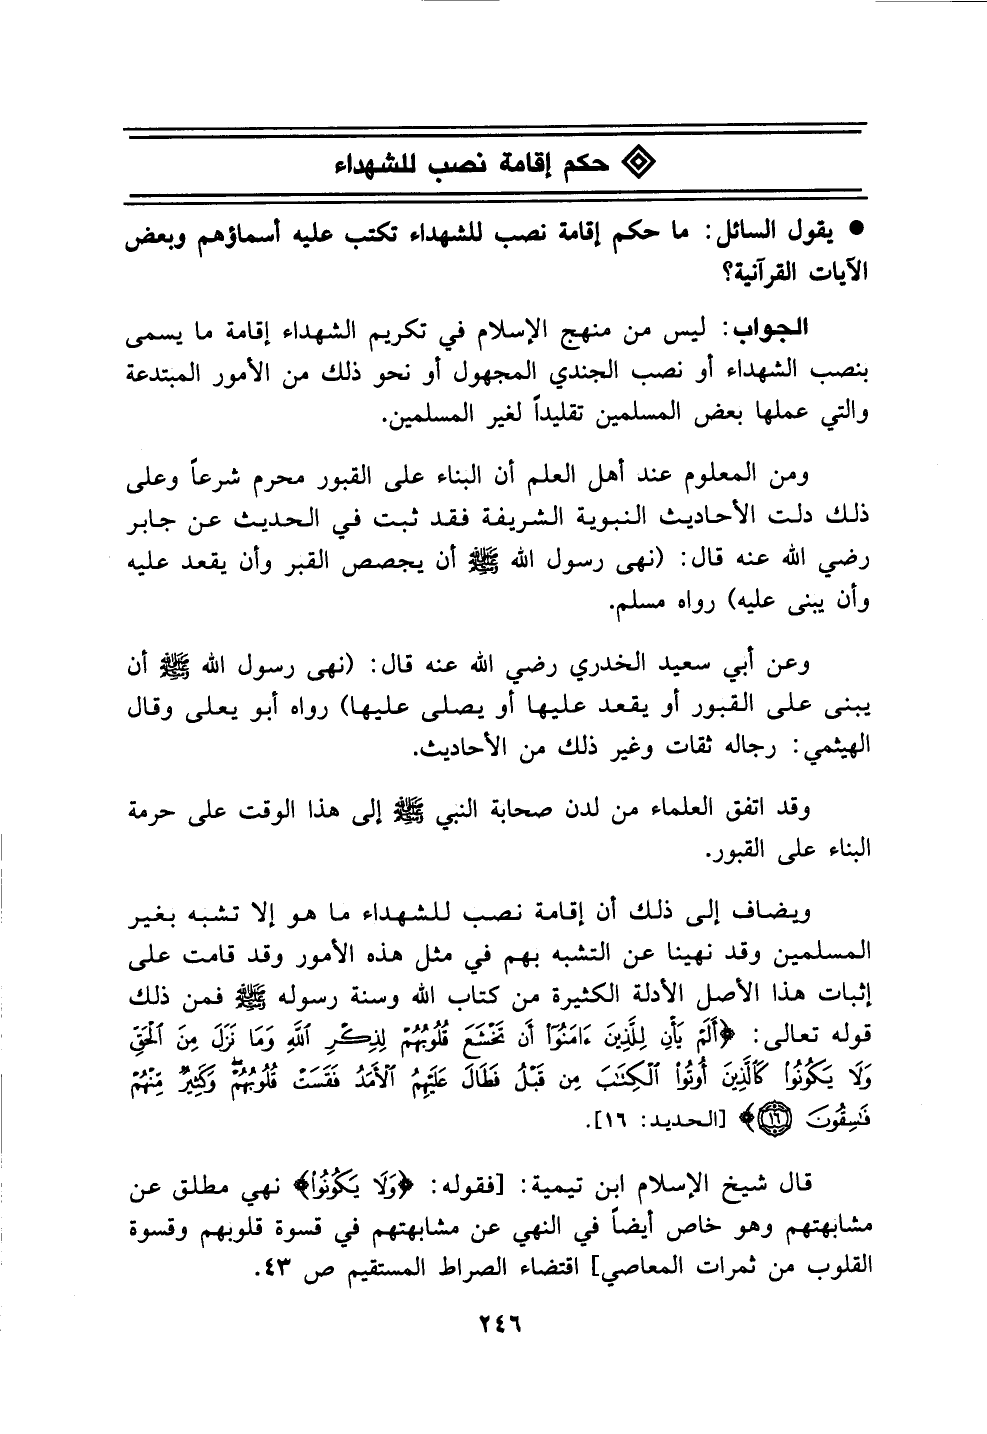 حكم إقامة نصب للشهداء
● يقول السائل: ما حكم إقامة نصب للشهداء تكتب عليه أسماؤهم وبعض
الآيات القرآنية؟
الجواب: ليس من منهج الإسلام في تكريم الشهداء إقامة ما يسمى
بنصب الشهداء أو نصب الجندي المجهول أو نحو ذلك من الأمور المبتدعة
والتي عملها بعض المسلمين تقليداً لغير المسلمين.
ومن المعلوم عند أهل العلم أن البناء على القبور محرم شرعاً وعلى
ذلك دلت الأحاديث النبوية الشريفة فقد ثبت في الحديث عن جابر
رضي الله عنه قال: (نهى رسول الله ﷺ أن يجصص القبر وأن يقعد عليه
وأن يبنى عليه) رواه مسلم.
وعن أبي سعيد الخدري رضي الله عنه قال: (نهى رسول الله ﷺ أن
يبنى على القبور أو يقعد عليها أو يصلى عليها) رواه أبو يعلى وقال
الهيثمي: رجاله ثقات وغير ذلك من الأحاديث.
وقد اتفق العلماء من لدن صحابة النبي ﷺ إلى هذا الوقت على حرمة
البناء على القبور.
ويضاف إلى ذلك أن إقامة نصب للشهداء ما هو إلا تشبه بغير
المسلمين وقد نهينا عن التشبه بهم في مثل هذه الأمور وقد قامت على
إثبات هذا الأصل الأدلة الكثيرة من كتاب الله وسنة رسوله ﷺ فمن ذلك
قوله تعالى: ﴿أَلَمْ يَأْنِ لِلَّذِينَ ءَامَنُوٓا۟ أَن تَخْشَعَ قُلُوبُهُمْ لِذِكْرِ ٱللَّهِ وَمَا نَزَلَ مِنَ ٱلْحَقِّ
وَلَا يَكُونُوا۟ كَٱلَّذِينَ أُوتُوا۟ ٱلْكِتَٰبَ مِن قَبْلُ فَطَالَ عَلَيْهِمُ ٱلْأَمَدُ فَقَسَتْ قُلُوبُهُمْ ۖ وَكَثِيرٌ مِّنْهُمْ
فَٰسِقُونَ ١٦﴾ [الحديد: ١٦].
قال شيخ الإسلام ابن تيمية: [فقوله: ﴿وَلَا يَكُونُوا۟﴾ نهي مطلق عن
مشابهتهم وهو خاص أيضاً في النهي عن مشابهتهم في قسوة قلوبهم وقسوة
القلوب من ثمرات المعاصي] اقتضاء الصراط المستقيم ص ٤٣.
٢٤٦